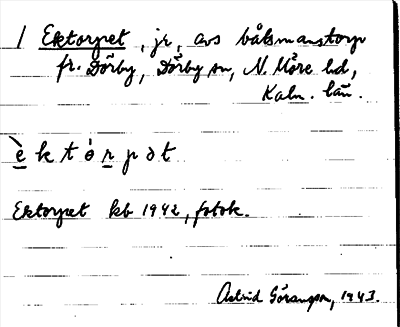 1 Ektorpet, jr, avs båtsmanstorp
fr. Dörby, Dörby sn, N. Möre hd,
Kalm. län.
èktòrpət
Ektorpet kb 1942, fotok.
Astrid Göransson, 1943.